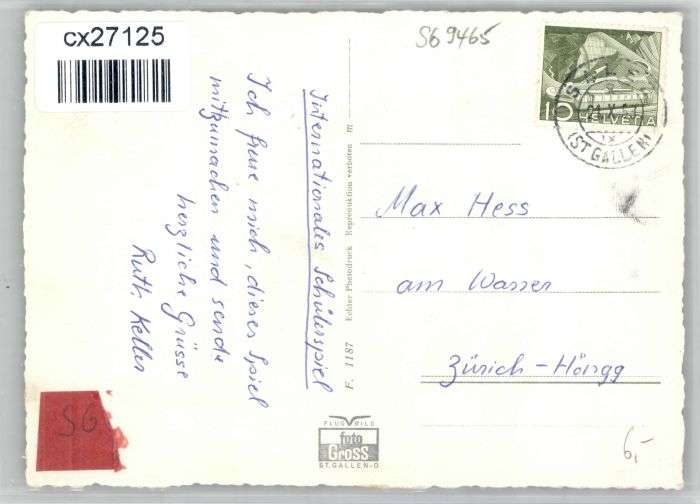 cx27125
SG 9465
10
HELVETIA
(ST GALLEN)
Internationales Schülerspiel
Ich freue mich, dieses Spiel
mitzumachen und sende
herzliche Grüsse
Ruth Keller
F. 1187 Echter Photodruck Reproduktion verboten
Max Hess
am Wasser
Zürich-Höngg
FLUGBILD
foto
GROSS
ST.GALLEN-O
SG
6,-